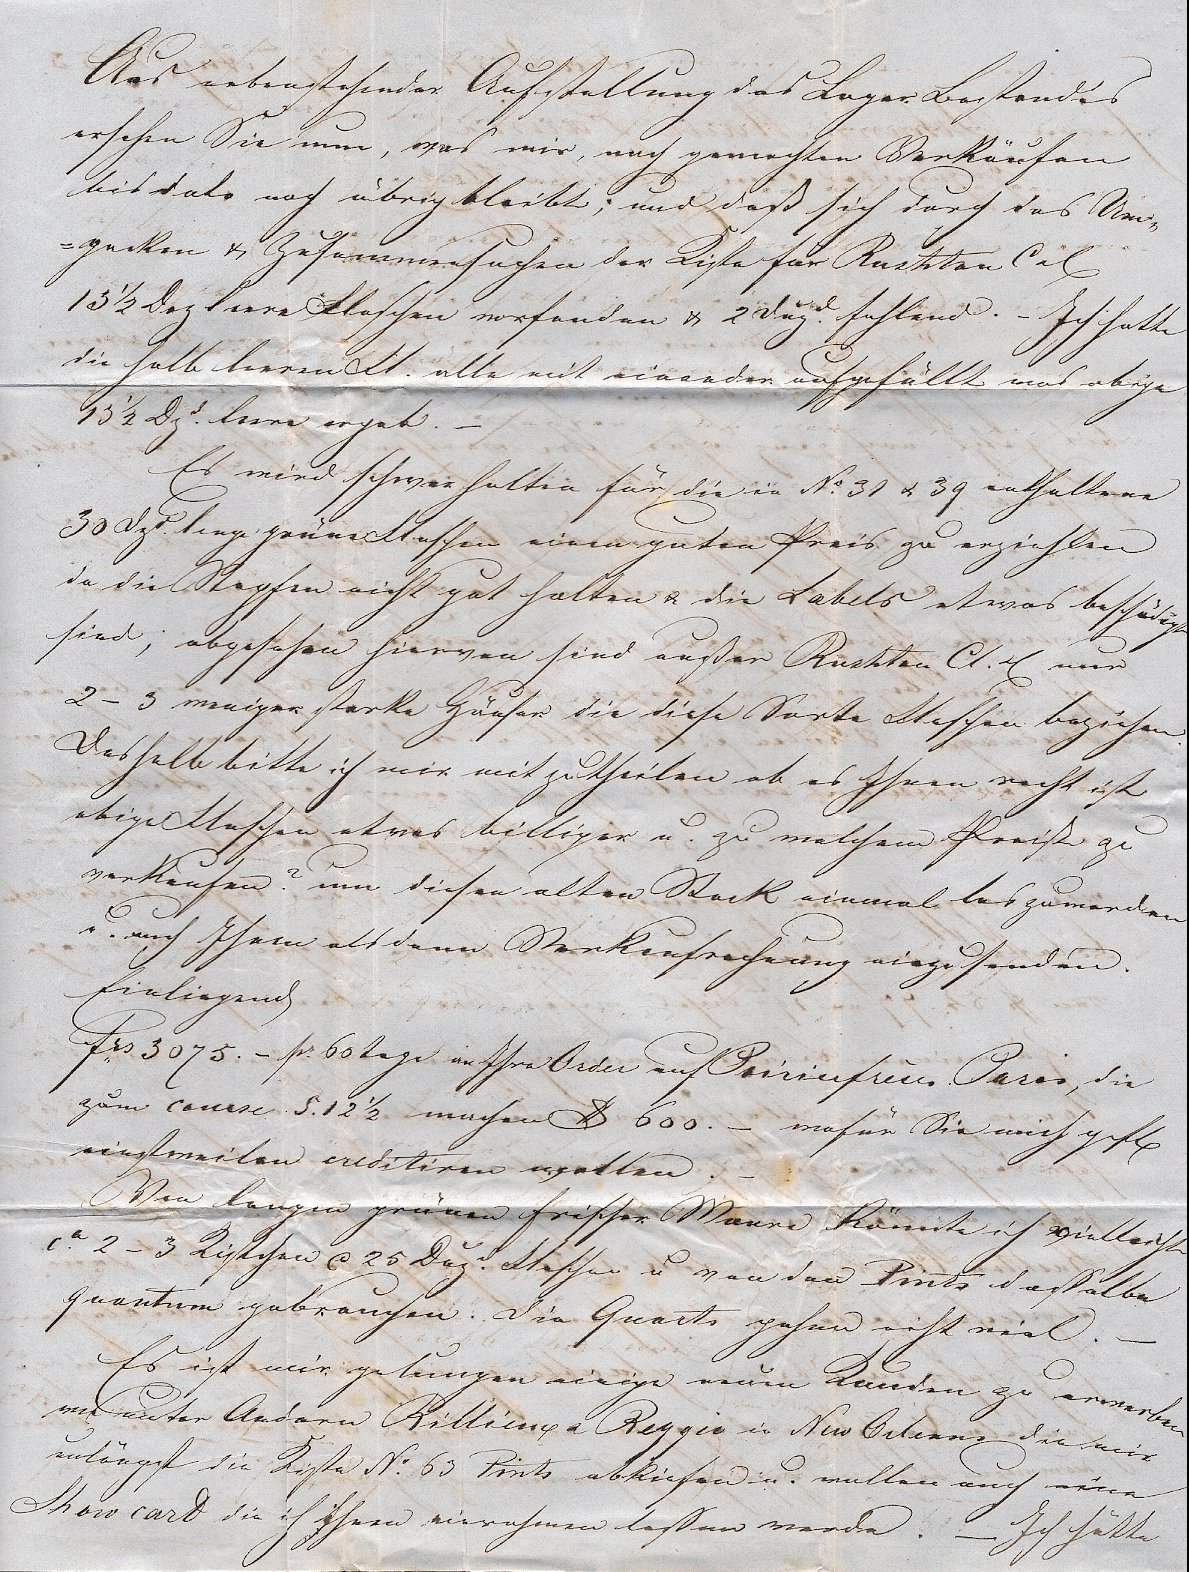 Aus nebenstehender Aufstellung des Lager Bestandes
ersehen Sie nun, was mir, nach gemachten Verkäufen
bis dato noch übrig bleibt; und daß sich durch das Um-
=packen & Zusammensuchen der Kiste für Rushton C &
13½ Dez leere Flaschen vorfanden & 2 Duzd. fehlend. – Ich hatte
die halb leeren Fl. alle mit einander aufgefüllt was obige
13½ Dzd. leere ergab. –
Es wird schwer halten für die in No. 31 & 39 enthaltene
30 Dzd. lange grüne Flaschen einen guten Preis zu erziehlen
da die Stopfen nicht gut halten & die Labels etwas beschädigt
sind; abgesehen hiervon sind außer Rushton Cl. & nur
2 – 3 weniger starke Häuser die diese Sorte Flaschen beziehen.
Deshalb bitte ich mir mitzutheilen ob es Ihnen recht ist
obige Flaschen etwas billiger u. zu welchem Preiße zu
verkaufen? um diesen alten Stock einmal loszuwerden
u. auch Ihnen alsdann Verkaufrechnung einzusenden.
Einliegend
frs 3075. – pr. 60 tage an Ihre Order auf Paris, die
zum course 5.12½ machen $ 600. – wofür Sie mich gefl
einstweilen creditiren wollen. –
Von langen grünen frischer Waare könnte ich vielleicht
ca 2 – 3 Kistchen @ 25 Duzd. Flaschen u von den Pints dasselbe
quantum gebrauchen. Die Quarts gehen nicht viel. –
Es ist mir gelungen einige neue Kunden zu erwerben
wie unter Andern & Reggio in New Orleans die mir
unlängst die Kiste No. 63 Pints abkiefen u. wollen auch eine
Show card die ich Ihnen einrahmen lassen werde. – Ich hätte